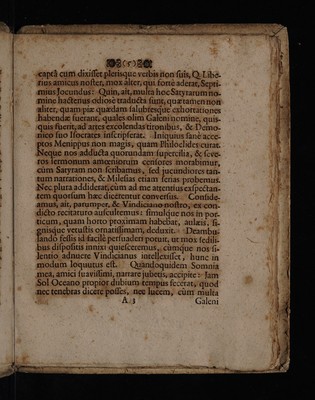 (5)
captâ cum dixisset plerisque verbis non suis, Q. Libe-
rius amicus noster, mox alter, qui fortè aderat, Septi-
mius Jocundus: Quin, ait, multa hoc Satyrarum no-
mine hactenus odiosè traducta sunt, quæ tamen non
aliter, quam piæ quædam salubresque exhortationes
habendæ fuerant, quales olim Galeni nomine, quis-
quis fuerit, ad artes excolendas tironibus, & Demo-
nico suo Isocrates inscripserat. Iniquius sanè acce-
ptos Menippus non magis, quam Philoclides curat.
Neque nos adducta quorundam supercilia, & seve-
ros sermonum amœniorum censores morabimur,
cùm Satyram non scribamus, sed jucundiores tan-
tum narrationes, & Milesias etiam serias probemus.
Nec plura addiderat, cùm ad me attentius exspectan-
tem quosum hæc dicerentur conversus. Conside-
amus, ait, parumper, & Vindiciano nostro, ex con-
dicto recitaturo auscultemus: simulque nos in por-
ticum, quam horto proximam habebat, aulæis, si-
gnisque vetustis ornatissimam, deduxit. Deambu-
lando fessis id facile persuaderi potuit, ut mox sedili-
bus dispositis innixi quiesceremus, cùmque nos si-
lentio adnuere Vindicianus intellexisset, hunc in
modum loquutus est. Quandoquidem Somnia
mea, amici suavissimi, narrare jubetis, accipite: Jam
Sol Oceano propior dubium tempus fecerat, quod
nec tenebras dicere posses, nec lucem, cùm multa
A 3 Galeni